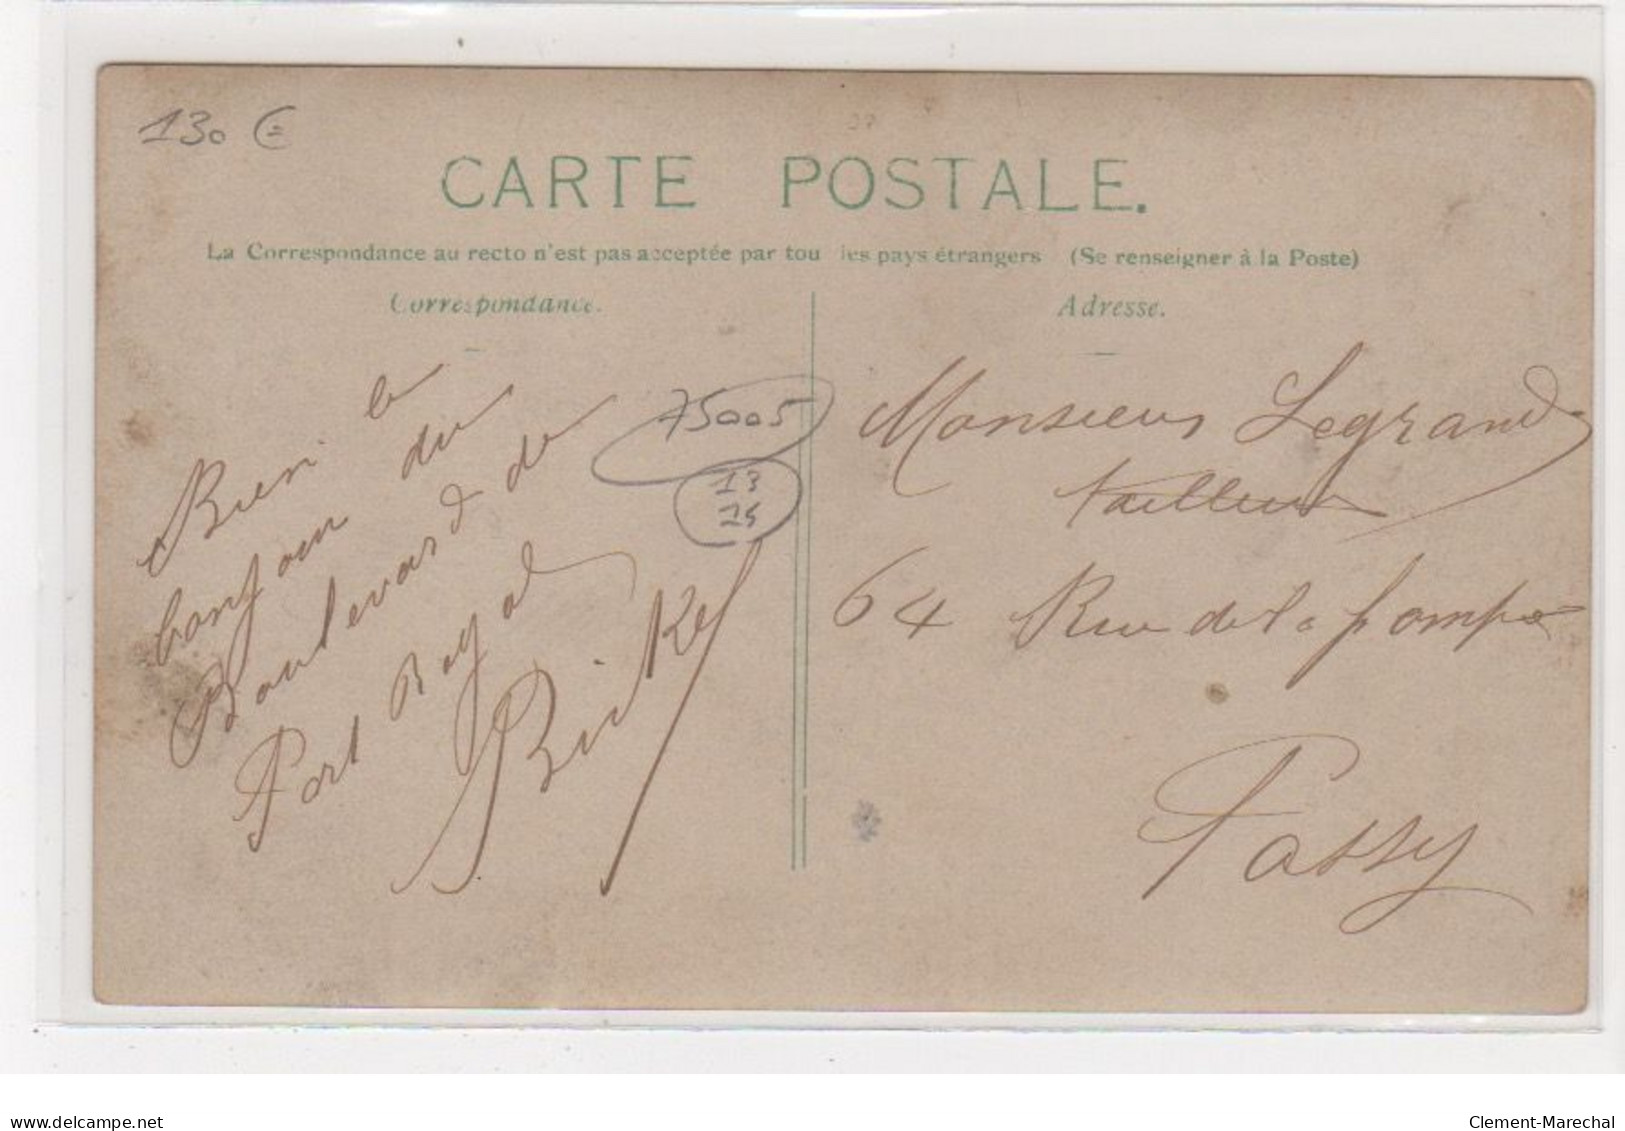 130 €
CARTE POSTALE.
La Correspondance au recto n'est pas acceptée par tou les pays étrangers (Se renseigner à la Poste)
Correspondance.
Adresse.
Bien le
bonjour du
Boulevard de
Port Royal
75005
13
Monsieur Legrand
tailleur
64 Rue de la pompe
Passy
www.delcampe.net
Clement-Marechal